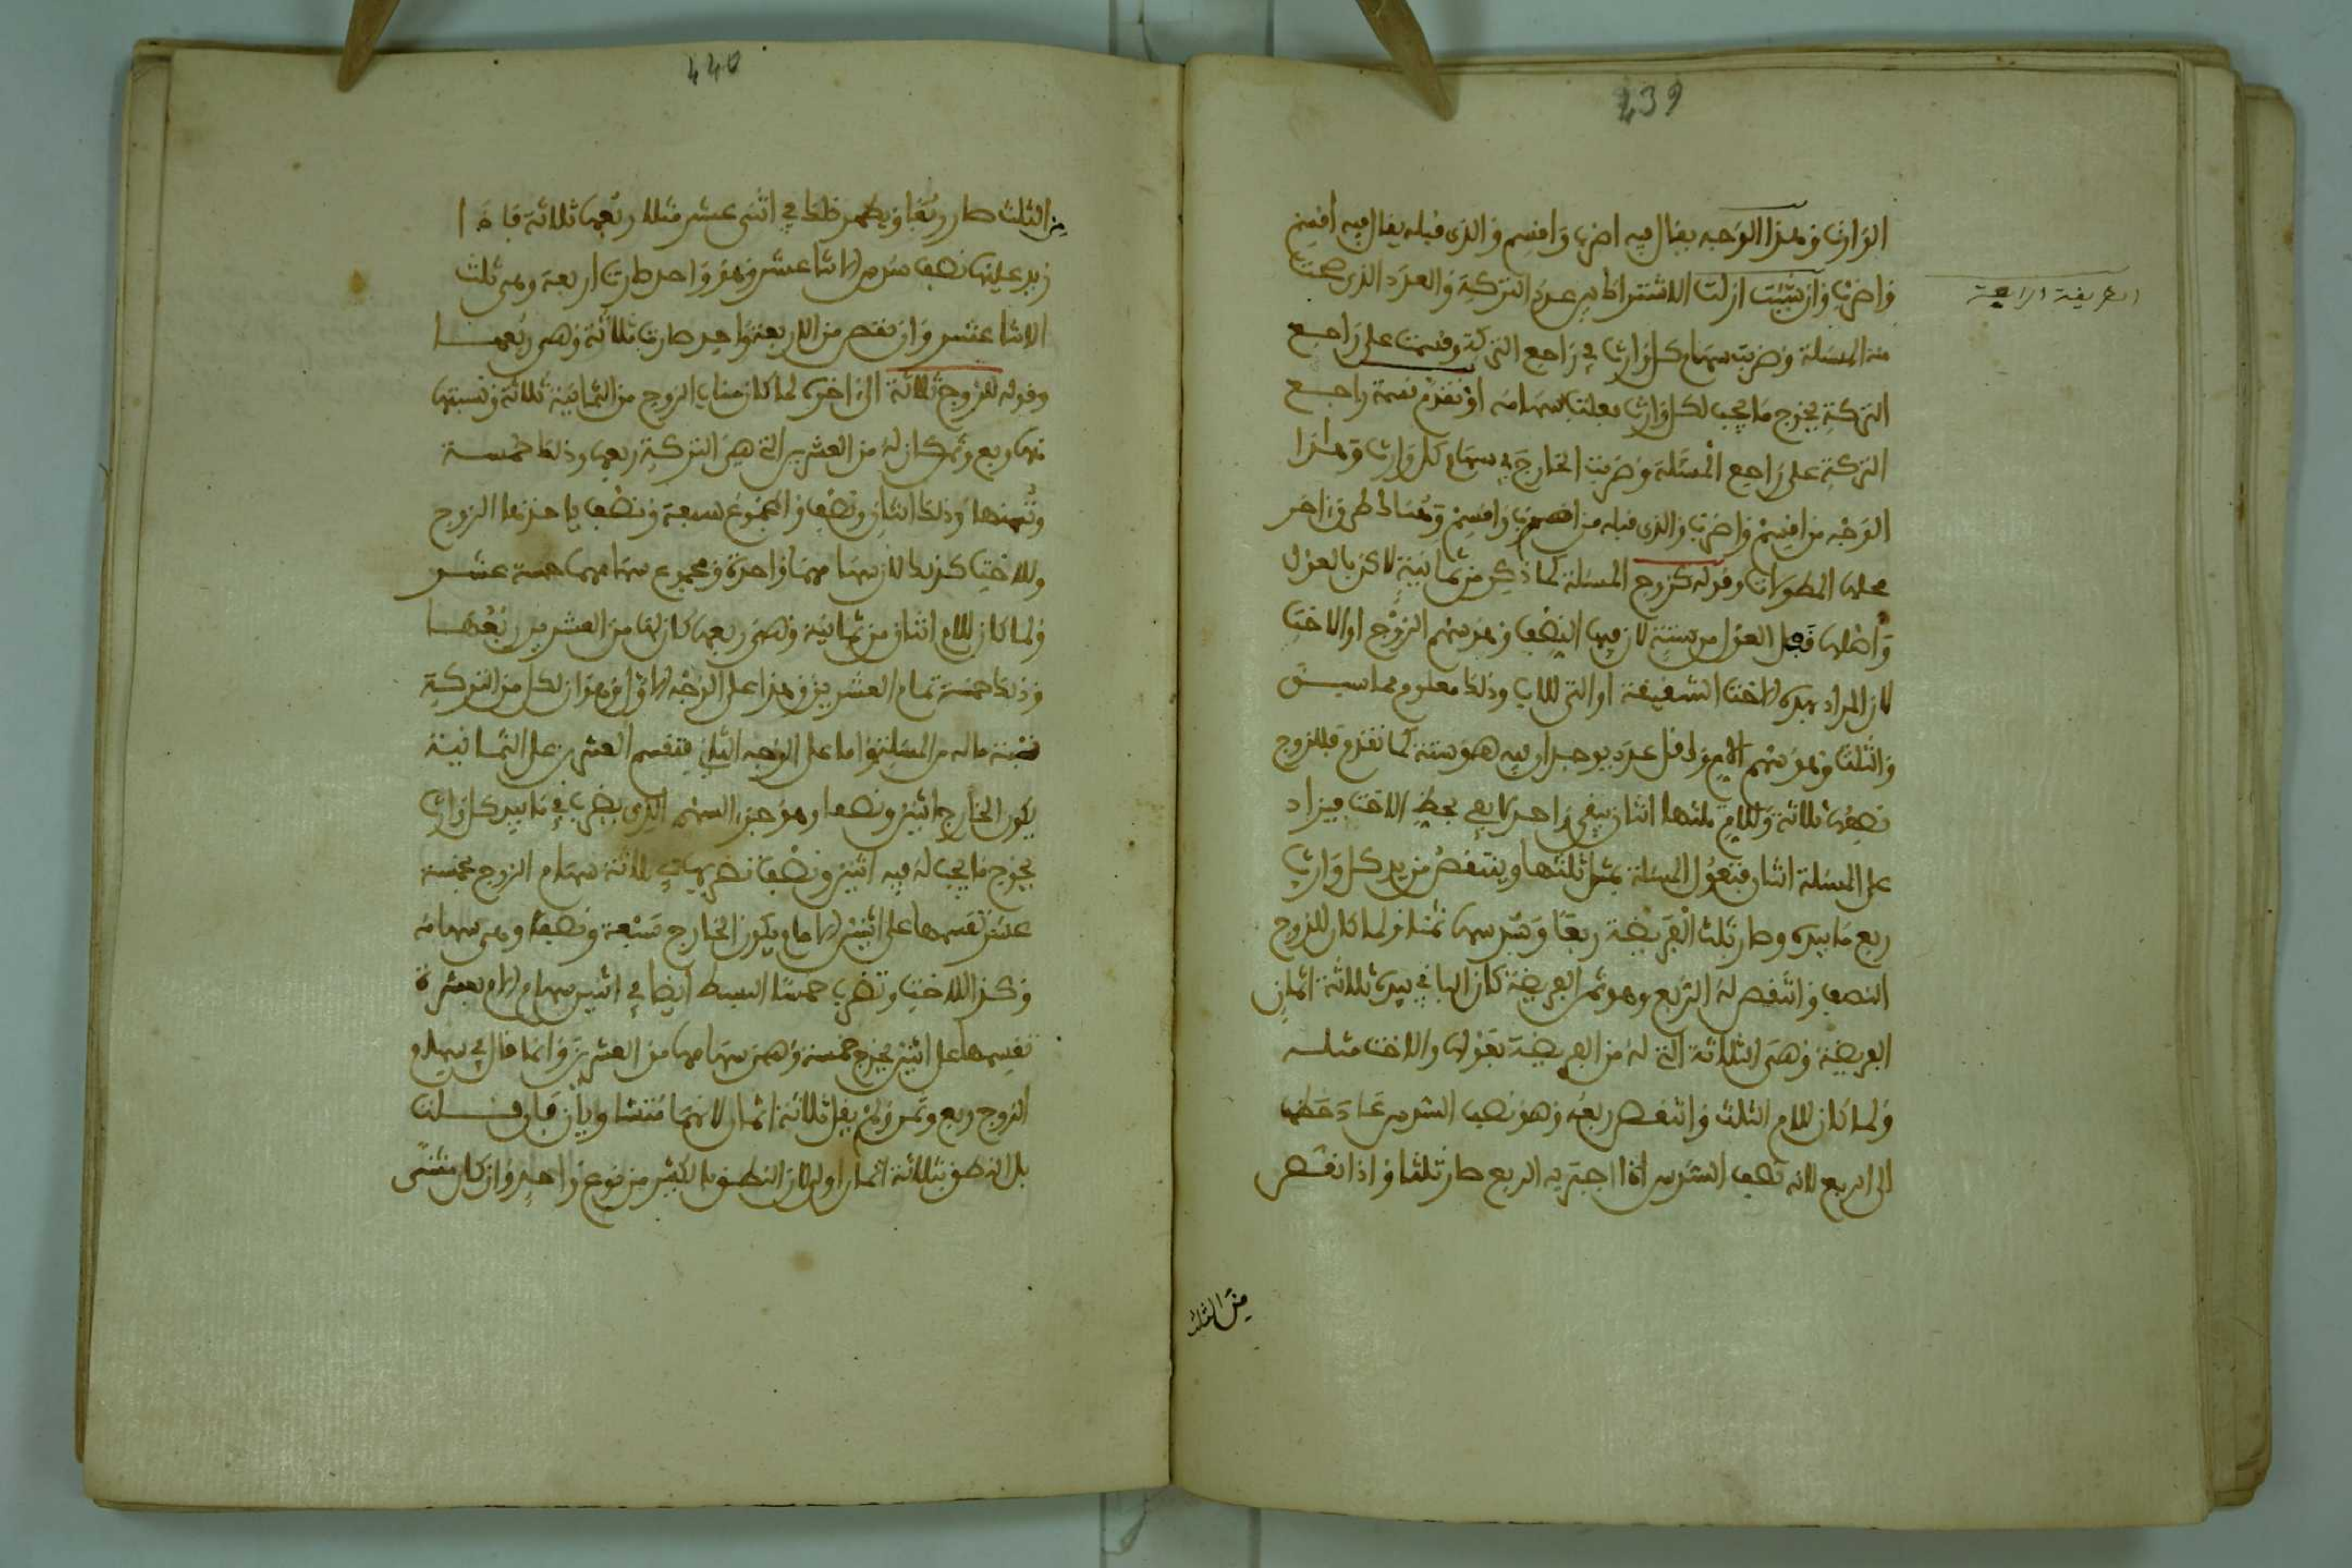 439
الوارث وهذا الوجه يقال فيه اضرب واقسم والذي قبله يقال فيه اقسم
واضرب وان شئت ازلت الاشتراط بين عدد التركة والعدد الذي صحت
الطريقة الرابعة
منه المسئلة وضربت سهام كل وارث في راجع التركة وقسمت على راجع
التركة يخرج ما يجب لكل وارث بعلت سهامه او تقدم قسمة راجع
التركة على راجع المسئلة وضربت الخارج في سهام كل وارث وهذا
الوجه من اقسم واضرب والذي قبله من اضرب واقسم وهناك طرق اخر
محلها المطولات وقوله كزوج المسئلة كما ذكر من ثمانية لاكن بالعول
واصلها قبل العول من ستة لان فيها النصف وهو سهم الزوج او الاخت
لان المراد بهذه الاخت الشقيقة او التي للاب وذلك معلوم مما سبق
والثلث وهو سهم الام واقل عدد يوجدان فيه هو ستة كما تقدم فللزوج
نصفها ثلاثة وللام ثلثها اثنان يبقى واحد لا يفي بحظ الاخت فيزاد
على المسئلة اثنان فتعول المسئلة بمثل ثلثها وينتقص من يد كل وارث
ربع ما بيده وصار ثلث الفريضة ربعا وسدسها ثمنا ولما كان للزوج
النصف وانتقص له الربع وهو ثمن الفريضة كان الباقي بيده ثلاثة اثمان
الفريضة وهي الثلاثة التي له من الفريضة بعولها والاخت مثله
ولما كان للام الثلث وانتقص ربعه وهو نصف السدس عاد حظها
الى الربع لانه نصف السدس اذا اجتزيد الربع صار ثلثا واذا نقص
من الثلث
440
من الثلث صار ربعا ويظهر ذلك في اثنى عشر مثلا ربعها ثلاثة فاذا
زيد عليها نصف سدس الاثنا عشر وهو واحد صارت اربعة وهي ثلث
الاثنا عشر وان نقص من الاربعة واحد صارت ثلاثة وهي ربعها
وقوله للزوج ثلاثة الى اخره لما كان مناب الزوج من الثمانية ثلاثة ونسبتها
منها ربع وثمن كان له من العشرين التي هي التركة ربعها وذلك خمسة
وثمنها وذلك اثنان ونصف والمجموع سبعة ونصف ياخذها الزوج
وللاخت كذلك لان سهامهما واحدة ومجموع سهامهما خمسة عشر
ولما كان للام اثنان من ثمانية وهي ربعها كان لها من العشرين ربعها
وذلك خمسة تمام العشرين وهذا على الوجه الاول وهو ان لكل من التركة
نسبة ماله من المسئلة واما على الوجه الثاني فتقسم العشرين على الثمانية
يكون الخارج اثنين ونصفا وهو جزء السهم الذي يضرب في ما بيد كل وارث
يخرج ما يجب له فيه اثنين ونصف تضرب في ثلاثة سهام الزوج بخمسة
عشر تقسمها على اثنين الامام يكون الخارج سبعة ونصفا وهي سهامه
وكذا للاخت وتضرب خمسة البسط ايضا في اثنين سهام الام بعشرة
تقسمها على اثنين يخرج خمسة وهي سهامها من العشرين وانما قال في سهام
الزوج ربع وثمن ولم يقل ثلاثة اثمان لانهما متساويان فان قلت
بل النطق بثلاثة اثمان اولى لان النطق بالكثير من نوع واحد وان كان مثنى